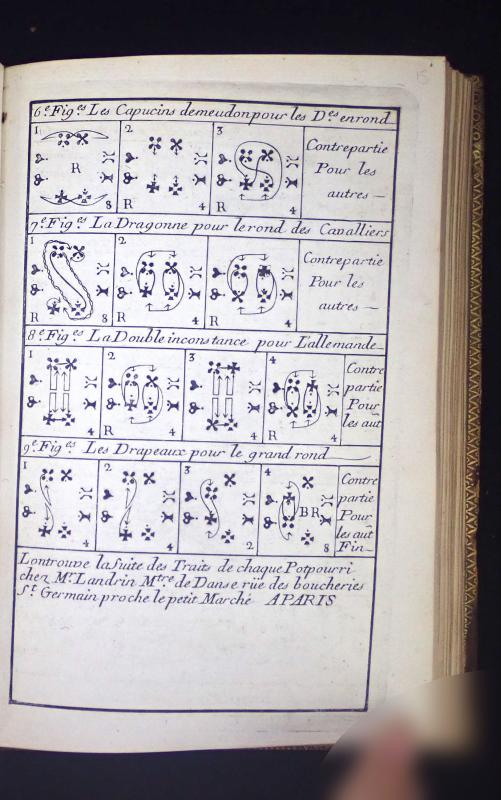 15
6.e Fig.es Les Capucins demeudon pour les D.es en rond
1 R 8
2 R 4
3 R 4
Contrepartie
Pour les
autres —
7.e Fig.es La Dragonne pour le rond des Cavalliers
1 R 8
2 R 4
3 R 4
Contrepartie
Pour les
autres —
8.e Fig.es La Double inconstance pour L'allemande
1 4
2 R 4
3 4
4 R 4
Contre
partie
Pour
les aut
9.e Fig.es Les Drapeaux pour le grand rond
1 4
2 4
3 2
4 BR 8
Contre
partie
Pour
les aut
Fin —
Lontrouve la Suite des Traits de chaque Potpourri
chez M.r Landrin M.tre de Danse rüe des boucheries
S.t Germain proche le petit Marché APARIS